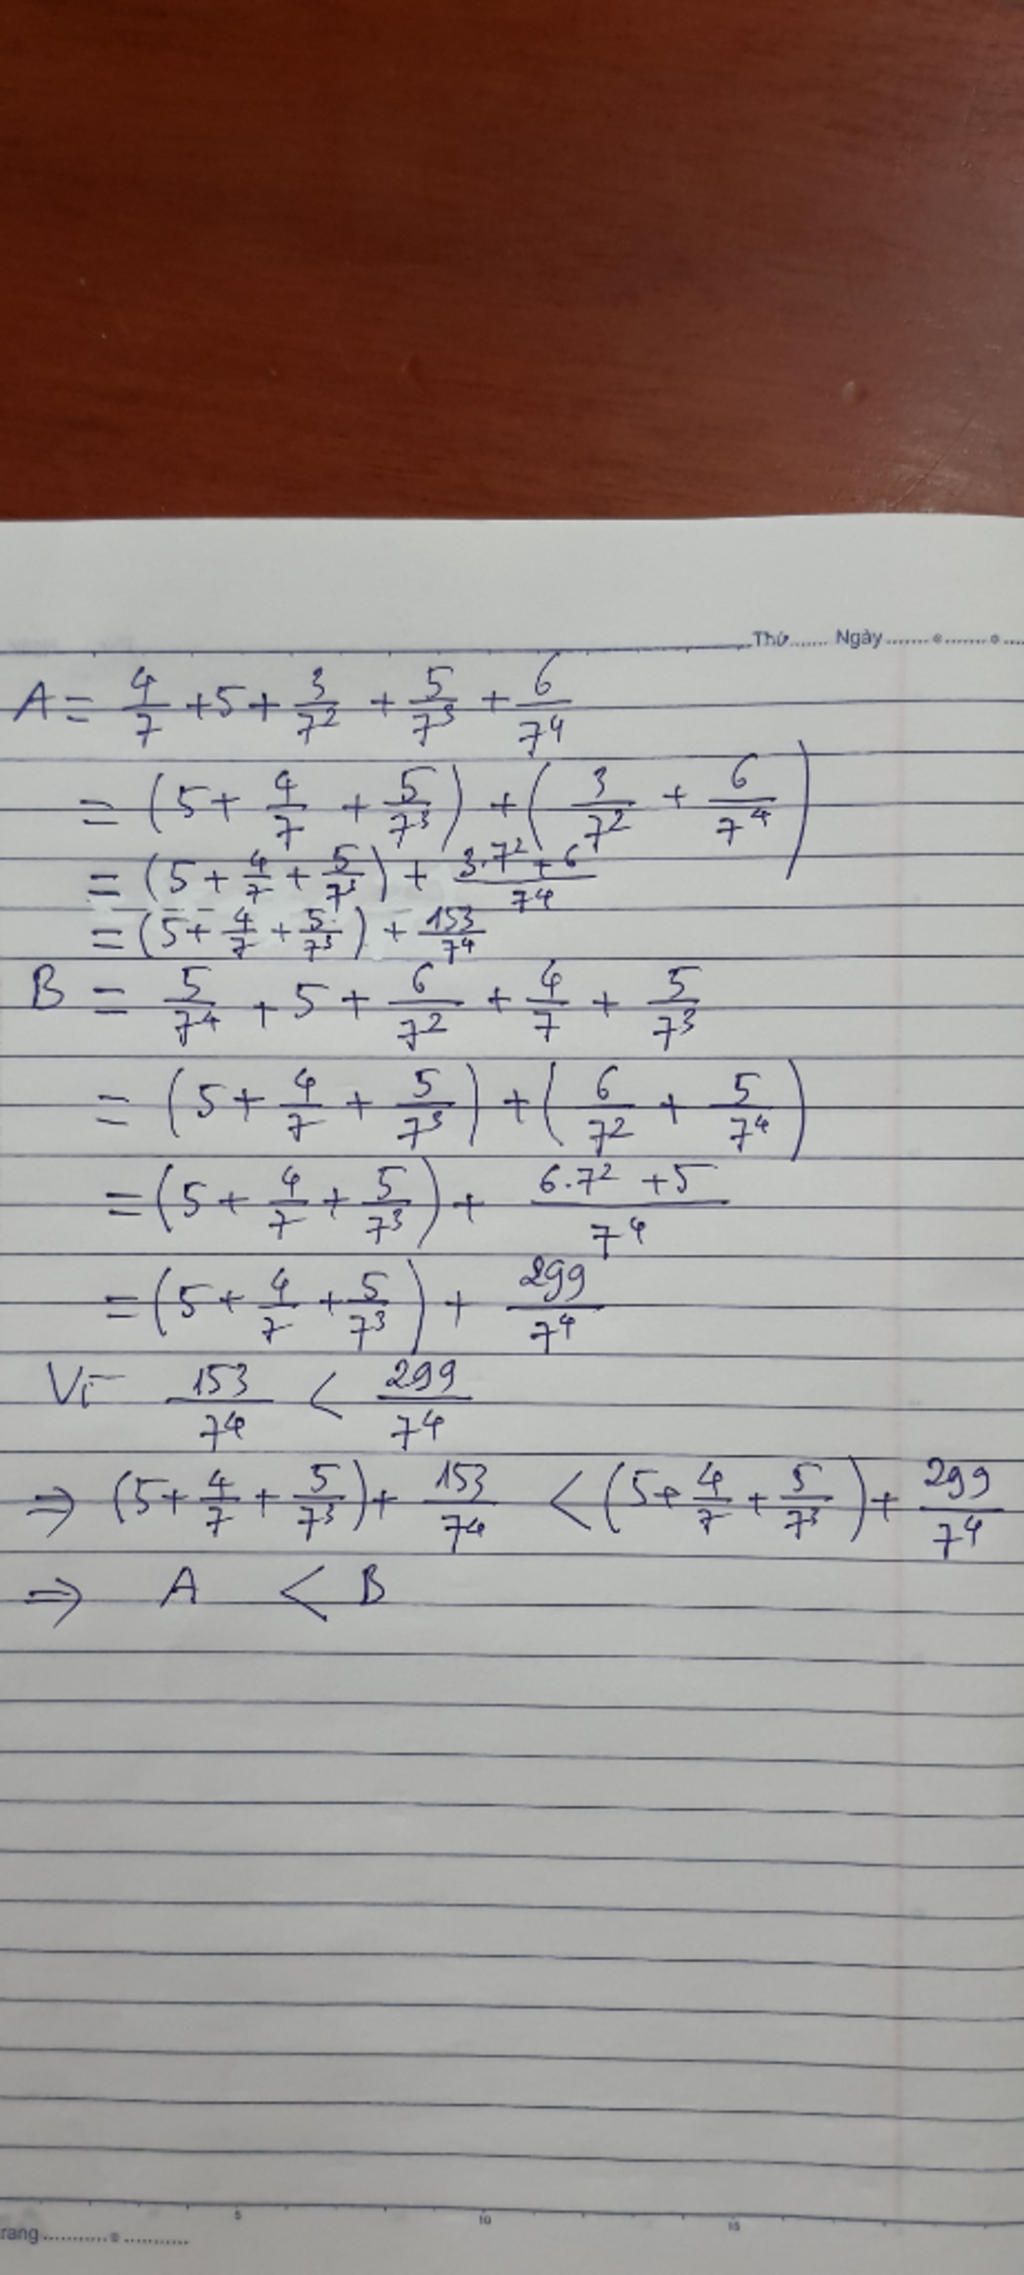 Thứ....... Ngày.......
A = 4/7 + 5 + 3/7² + 5/7³ + 6/7⁴
= (5 + 4/7 + 5/7³) + (3/7² + 6/7⁴)
= (5 + 4/7 + 5/7³) + (3.7² + 6)/7⁴
= (5 + 4/7 + 5/7³) + 153/7⁴
B = 5/7⁴ + 5 + 6/7² + 4/7 + 5/7³
= (5 + 4/7 + 5/7³) + (6/7² + 5/7⁴)
= (5 + 4/7 + 5/7³) + (6.7² + 5)/7⁴
= (5 + 4/7 + 5/7³) + 299/7⁴
Vì 153/7⁴ < 299/7⁴
⇒ (5 + 4/7 + 5/7³) + 153/7⁴ < (5 + 4/7 + 5/7³) + 299/7⁴
⇒ A < B
5 10 15
rang